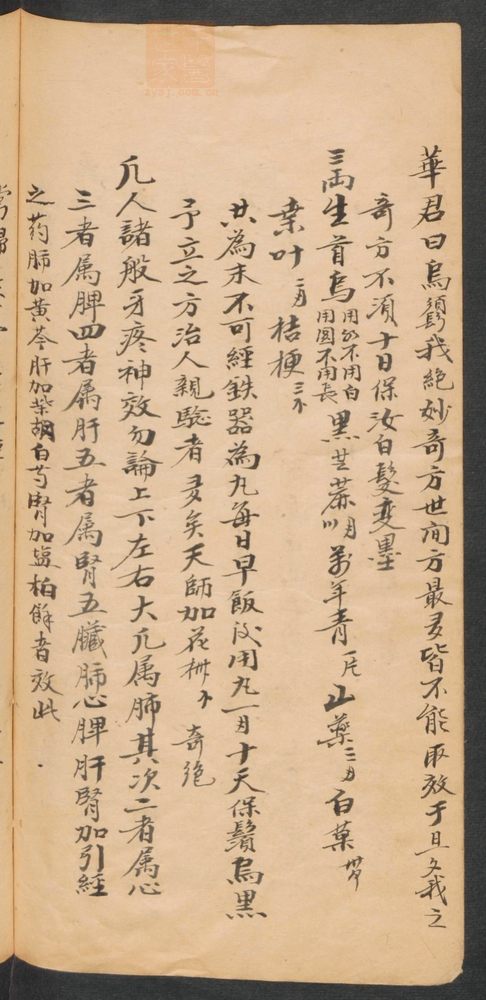 華君曰烏鬚我絶妙奇方世间方最多皆不能取效于旦夕我之
奇方不須十日保汝白髮变墨
三両生首烏用欤不用白用圆不用長黑芝蔴萬年青一片山藥三刄白菓
桒叶三刄桔梗三
共為末不可經鉄器為丸每日早飯後用丸一刄十天保鬚烏黑
予立之方治人親驗者多矣天師加花椒奇绝
凢人諸般牙疼神效勿論上下左右大凢属肺其次二者属心
三者属脾四者属肝五者属腎五臟肺心脾肝腎加引經
之药肺加黄芩肝加柴胡白芍腎加盐柏餘者效此